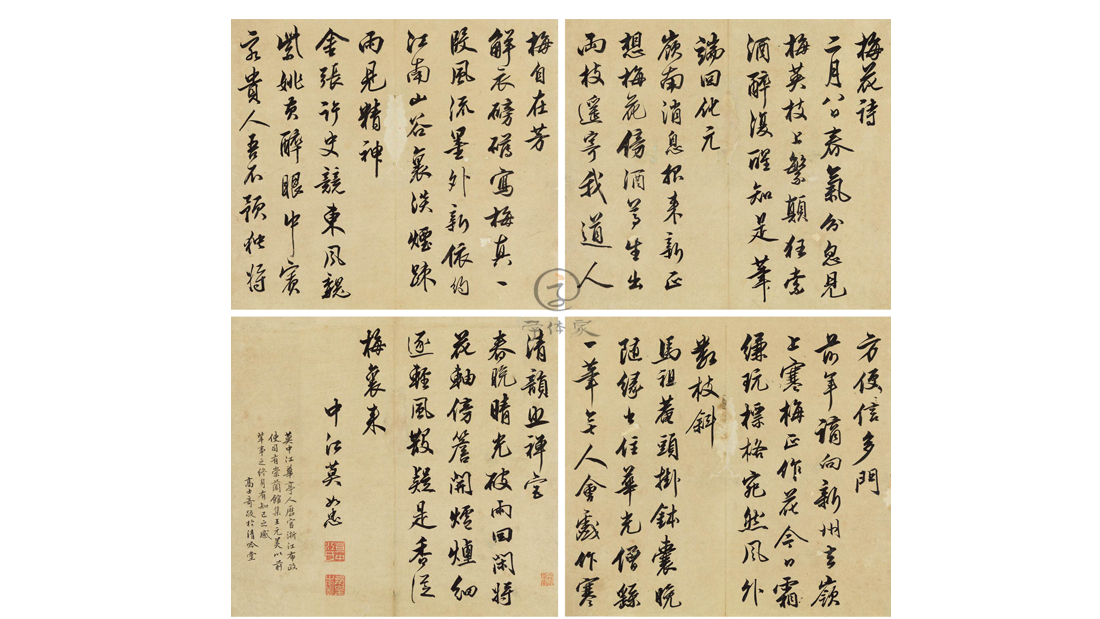 梅花詩
二月八日春氣分忽見
梅英枝上繁顛狂索
酒醉復醒知是筆
端回化元
嶺南消息報来新正
想梅花傍酒尊生出
兩枝遥寄我道人
方便信多門
前年謫向新州去嶺
上寒梅正作花今日霜
縑玩標格宛然風外
數枝斜
馬祖菴頭掛鉢囊晚
隨緣去住華光僧繇
一筆無人會戲作寒
梅自在芳
解衣磅礴寫梅真一
段風流墨外新依約
江南山谷裏淡煙疎
雨見精神
金張許史競東風魏
紫姚黃醉眼中賓
客貴人吾不預獨將
清韻與禪宗
春晚晴光破雨回閑將
花軸傍簷開爐煙細
逐輕風散疑是香從
梅裏来
中江莫如忠
莫中江華亭人歷官浙江布政
使司有崇蘭館集王元美以前
輩事之終身有知己之感
高士奇跋於清吟堂
字体家